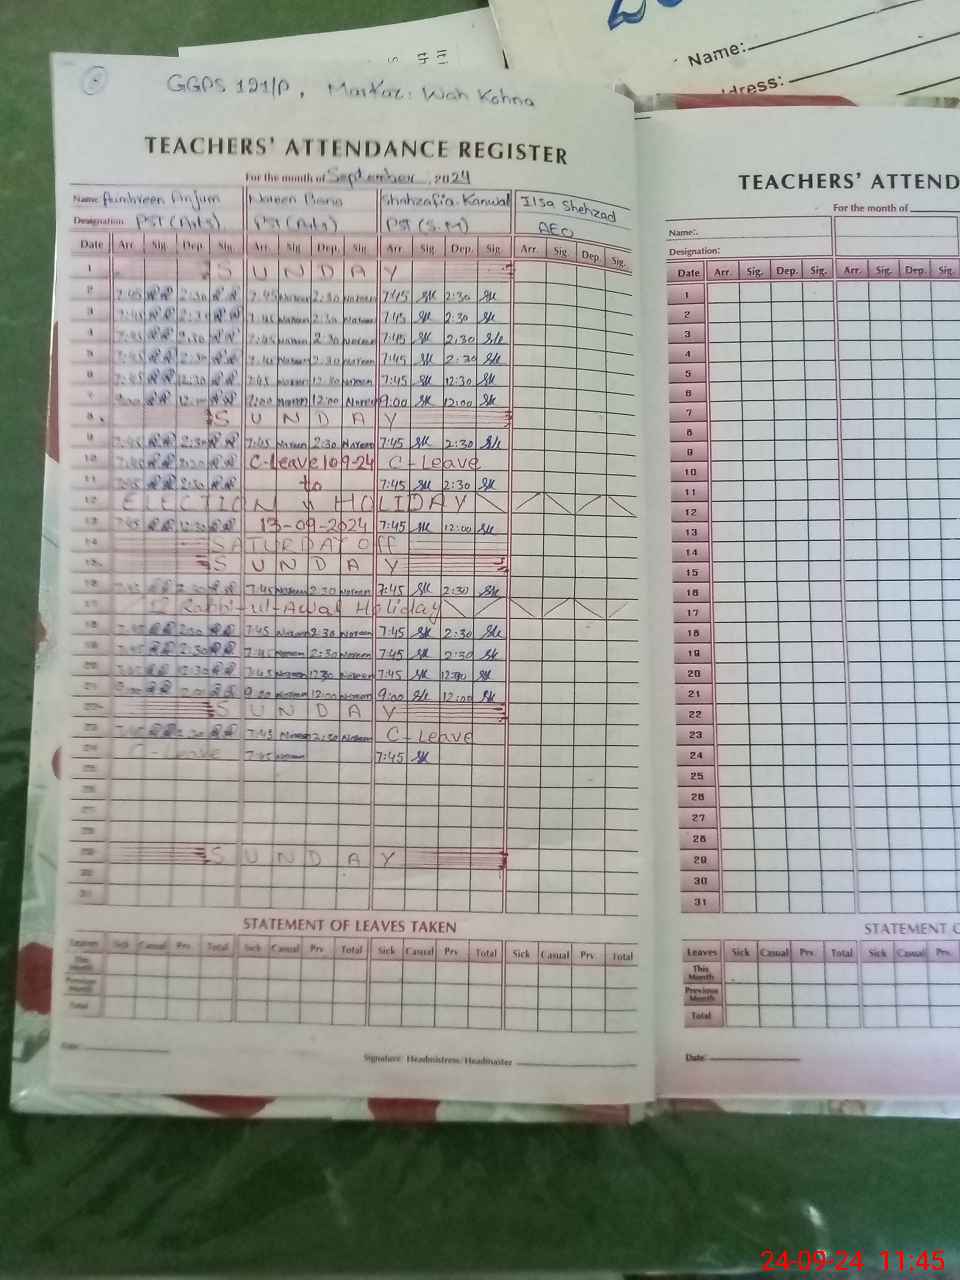 Name:
dress:
GGPS 121/P, Markaz: Wah Kohna
TEACHERS' ATTENDANCE REGISTER
For the month of September, 2024
Name Aimbreen Anjum Nareen Bano Shahzafia Kanwal Ilsa Shehzad
Designation PST (Arts) PST (Arts) PST (S.M) AEO
Date Arr. Sig. Dep. Sig. Arr. Sig. Dep. Sig. Arr. Sig. Dep. Sig. Arr. Sig. Dep. Sig.
1 SUNDAY
2 7:45 2:30 7:45 Nareen 2:30 Nareen 7:45 SK 2:30 SK
3 7:45 2:30 7:45 Nareen 2:30 Nareen 7:45 SK 2:30 SK
4 7:45 2:30 7:45 Nareen 2:30 Nareen 7:45 SK 2:30 SK
5 7:45 2:30 7:45 Nareen 2:30 Nareen 7:45 SK 2:30 SK
6 7:45 12:30 7:45 Nareen 12:30 Nareen 7:45 SK 12:30 SK
7 9:00 12:00 Nareen 12:00 Nareen 9:00 SK 12:00 SK
8 SUNDAY
9 7:45 2:30 7:45 Nareen 2:30 Nareen 7:45 SK 2:30 SK
10 7:45 2:30 C-Leave 10-9-24 C-Leave
11 7:45 2:30 to 7:45 SK 2:30 SK
12 ELECTION HOLIDAY
13 7:45 12:30 13-09-2024 7:45 SK 12:00 SK
14 SATURDAY Off
15 SUNDAY
16 7:45 2:30 7:45 Nareen 2:30 Nareen 7:45 SK 2:30 SK
17 12 Rabbi-ul-Awal Holiday
18 7:45 2:30 7:45 Nareen 2:30 Nareen 7:45 SK 2:30 SK
19 7:45 2:30 7:45 Nareen 2:30 Nareen 7:45 SK 2:30 SK
20 7:45 12:30 7:45 Nareen 12:30 Nareen 7:45 SK 12:30 SK
21 9:00 9:00 Nareen 12:00 Nareen 9:00 SK 12:00 SK
22 SUNDAY
23 7:45 2:30 7:45 Nareen 2:30 Nareen C-Leave
24 C-Leave 7:45 Nareen 7:45 SK
25
26
27
28
29 SUNDAY
30
31
STATEMENT OF LEAVES TAKEN
Leaves Sick Casual Prv. Total Sick Casual Prv. Total Sick Casual Prv. Total Sick Casual Prv. Total
This Month
Previous Month
Total
Date:
Signature: Headmistress/Headmaster
TEACHERS' ATTEND
For the month of
Name:.
Designation:
Date Arr. Sig. Dep. Sig. Arr. Sig. Dep. Sig.
1
2
3
4
5
6
7
8
9
10
11
12
13
14
15
16
17
18
19
20
21
22
23
24
25
26
27
28
29
30
31
STATEMENT
Leaves Sick Casual Prv. Total Sick Casual Prv.
This Month
Previous Month
Total
Date:
24-09-24 11:45